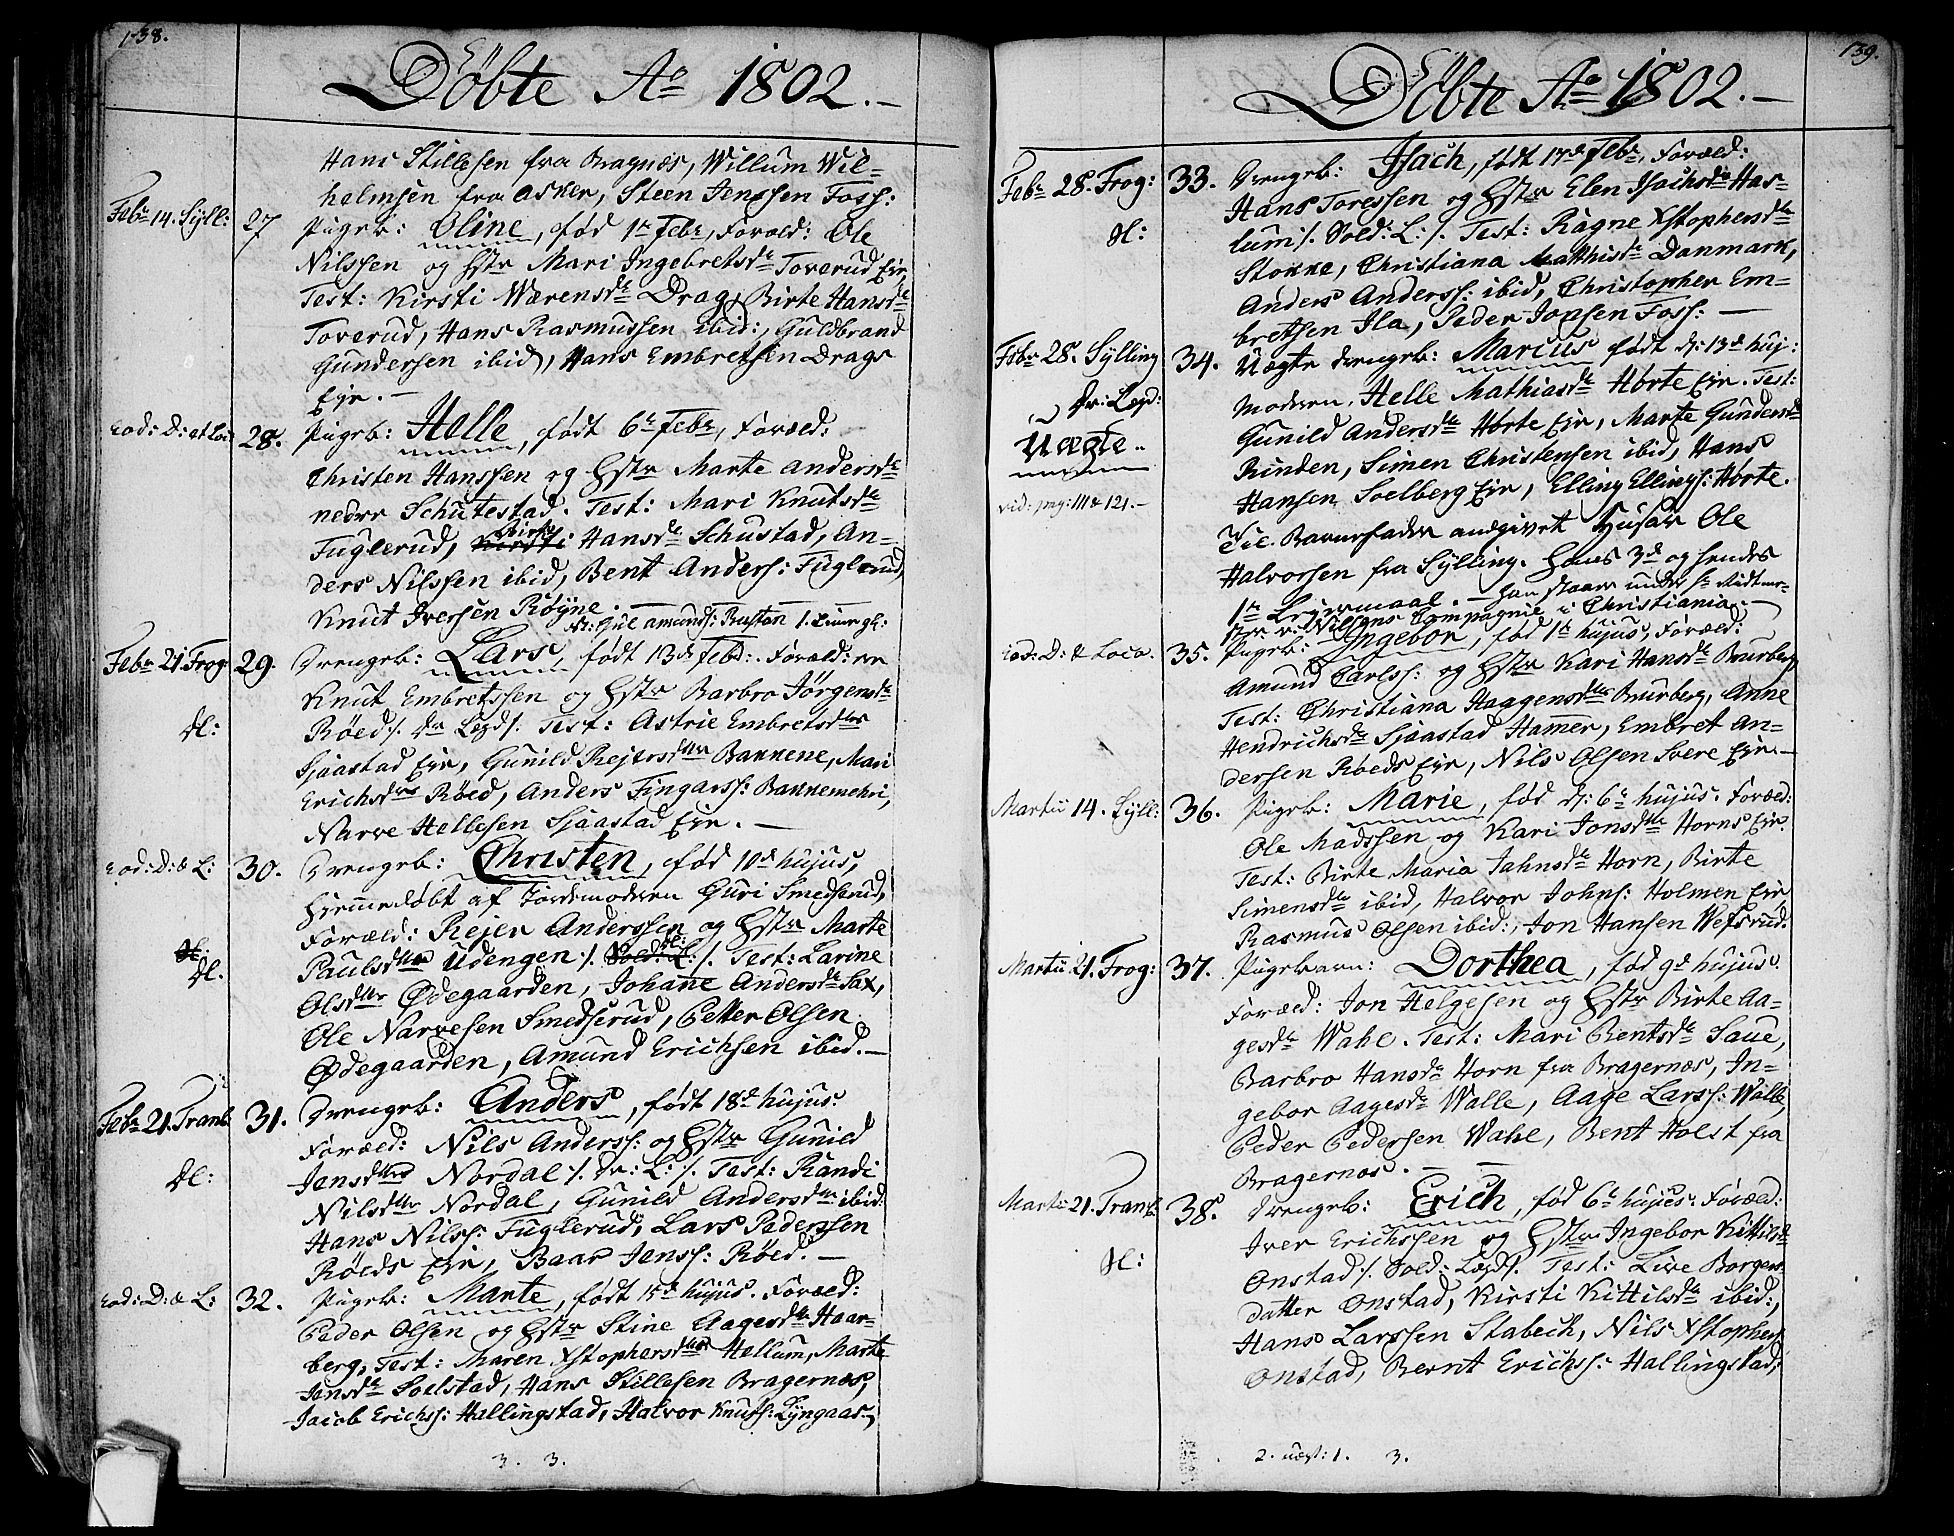 138.
Døbte Ao 1802.
Hans Stillesen fra Bragnæs, Willum Wil-
helmsen fra Asker, Steen Jenssen Foss:
Febr 14. Syll: 27 Pigeb: Oline, fød 1te Febr, Foræld: Ole
Nilssen og Hstr Mari Ingebretsdr Toverud Eje,
Test: Kirsti Wærensdr Drag, Birte Hansdr
Toverud, Hans Rasmussen ibid:, Guldbrand
Gundersen ibid, Hans Embretsen Drags
Eje. -
eod: D: et Loc: 28. Pigeb: Helle, født 6te Febr, Foræld:
Christen Hanssen og Hstr Marte Andersdr
nedre Schutestad. Test: Mari Knutsdr
Fuglerud, Kirsti Birte Hansdr Schustad, An-
ders Nilssen ibid, Bent Anders: Fuglerud,
Knut Iversen Røyne. -
Febr 21. Frog: 29. Drengeb: Lars, født 13de Febr: Foræld:
Knut Embretssen og Hstr Barbro Jørgensdr
dl: Røed /. dr Legd /. Test: Astrie Embretsdtr
Sjaastad Eje, Gunild Rejersdtr Bannene, Mari
Erichsdtr Røed, Anders Fingarss: Bannemehri,
Narve Hellesen Sjaastad Eje. -
eod: D: & L: 30. Drengeb: Christen, fød 10de hujus,
hjemmedøbt af Jordemoderen Guri Smedserud,
Foræld: Rejer Anderssen og Hstr Marte
dl. Paulsdtr Udengen /. Sold: L: dl: /. Test: Larine
Olsdtr Ødegaarden, Johane Andersdr Sax,
Ole Narvesen Smedserud, Petter Olsen
Ødegaarden, Amund Erichsen ibid. -
Febr 21. Tranb: 31. Drengeb: Anders, født 18de hujus.
Foræld: Nils Anderss: og Hstr Gunild
dl: Jensdtr Nordal /. dr: L: /. Test: Randi
Nilsdtr Nordal, Gunild Andersdtr ibid:
Hans Nilss: Fuglerud, Lars Pederssen
Røeds Eje, Baar Jenss: Røed. -
eod: D: & L: 32. Pigeb: Marte, født 15de hujus. Foræld:
Peder Olsen og Hstr Stine Aagesdr Haar-
berg, Test: Maren Xstophersdtr Hellum, Marte
Jensdr Soelstad, Hans Stillesen Bragernæs,
Jacob Erichss: Hallingstad, Halvor Knuts: Lyngaas,
3. 3.
139.
Døbte Ao 1802.
Febr 28. Frog: 33. Drengeb: Isach, født 17de Febr, Foræld:
Hans Toressen og Hstr Elen Isachsdr Has-
dl: lum /. Sold: L: /. Test: Ragne Xstophersdtr
Stokke, Christiana Matthisdr Danmark,
Anders Anderss: ibid, Christopher Em-
bretsen Ila, Peder Jopsen Foss: -
Febr 28. Sylling 34. Uægte Drengeb: Marcus født d: 13de huj:
dr: Legd: Moderen, Helle Mathiasdr Hørte Eje. Test:
Uægte.. Gunild Andersdr Hørte Eje, Marte Gundersdr
Rinden, Simen Christensen ibid, Hans
vid: pag: 111 & 121. - Hansen Soelberg Eje, Elling Ellings: Hørte.
Til Barnefader andgivet Husar Ole
Halvorsen fra Sylling. Hans 3de og hendes
1te Lejermaal. - han staaer under
Compagnie i Christiania. -
eod: D: & Loco. 35. Pigeb: Ingebor, fød 1te hujus, Foræld:
Amund Carlss: og Hstr Kari Hansdr Buurberg
Test: Christiana Haagensdtr Buurberg, Anne
Hendrichsdr Sjaastad Hamer, Embret An-
dersen Røeds Eje, Nils Olsen Svere Eje. -
Martii 14. Syll: 36. Pigeb: Marie, fød d: 6te hujus. Foræld:
Ole Madssen og Kari Jonsdtr Horns Eje.
Test: Birte Maria Jahnsdr Horn, Birte
Simensdtr ibid, Halvor Johns: Holmen Eje,
Rasmus Olsen ibid:, Jon Hansen Wefsrud.
Martii 21. Frog: 37. Pigebarn: Dorthea, fød 9de hujus.
Foræld: Jon Helgesen og Hstr Birte Aa-
gesdr Wahe. Test: Mari Bentsdr Saue,
Barbro Hansdr Horn fra Bragernæs, In-
gebor Aagesdr Walle, Aage Larss: Walle,
Peder Pedersen Wahe, Bent Holst fra
Bragernæs. -
Martii 21. Tranb: 38. Drengeb: Erich, fød 6te hujus. Foræld:
Iver Erichssen og Hstr Ingebor Kittilsdr
dl: Onstad /. Sold: Legd /. Test: Live Borgers-
datter Onstad, Kirsti Kittilsdr ibid:,
Hans Larssen Stabech, Nils Xstophers:
Onstad, Bernt Erichss: Hallingstad,
2. uægt: 1. 3.